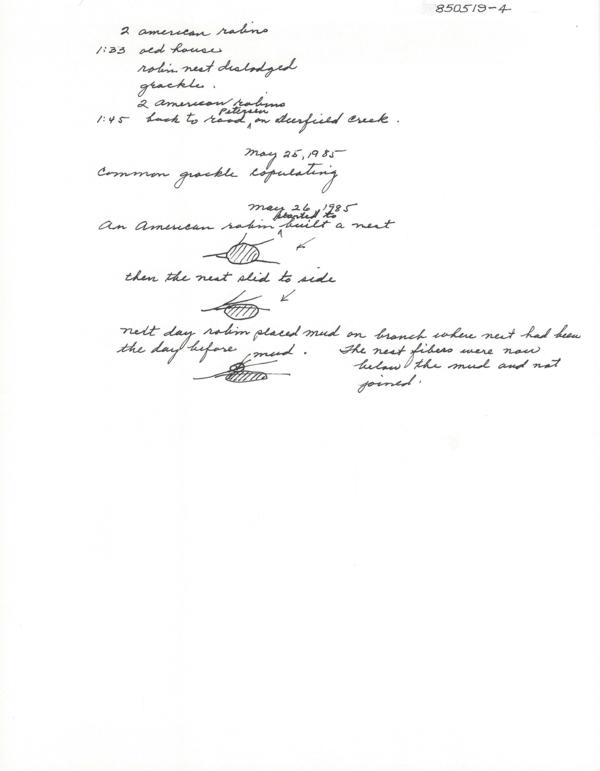 850519-4
2 american robins
1:33 old house
robin nest dislodged
grackle.
2 american robins
1:45 back to Petersen road on Deerfield Creek.
May 25, 1985
Common grackle copulating
May 26, 1985
An American robin started to built a nest
then the nest slid to side
next day robin placed mud on branch where nest had been
the day before mud. The nest fibers were now
below the mud and not
joined.